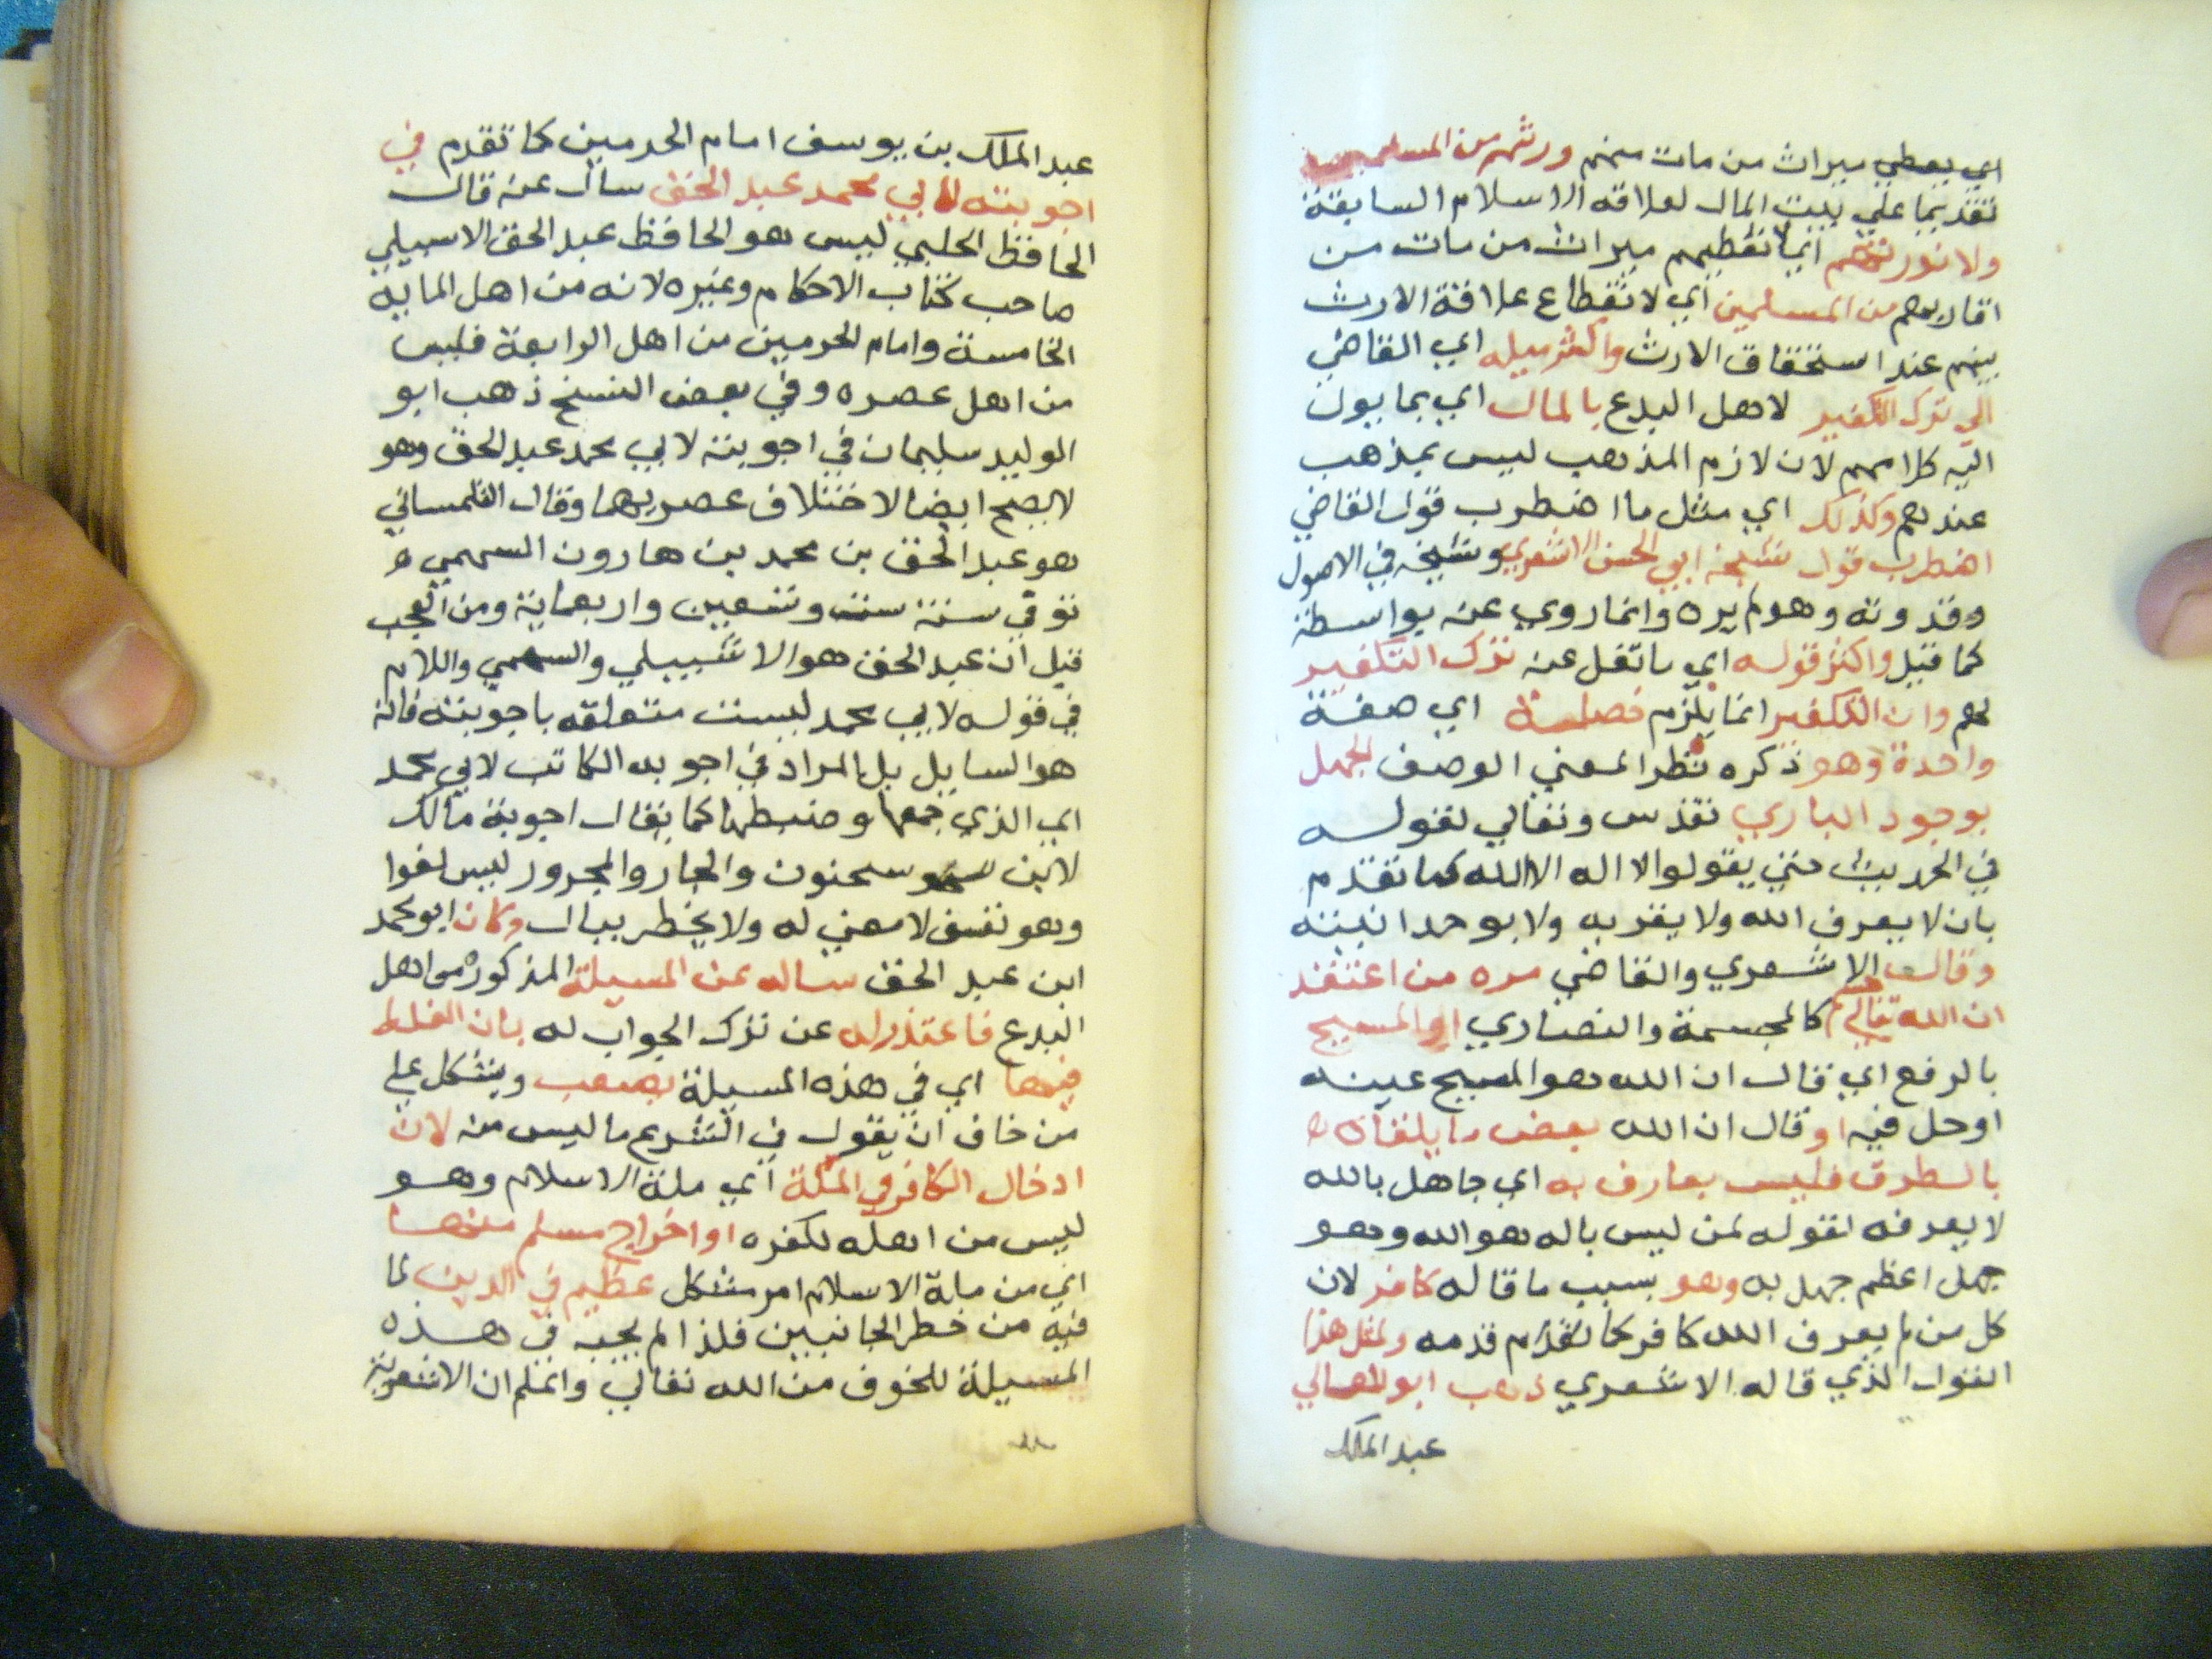 اي يعطي ميراث من مات منهم ورثتهم من المسلمين
تقديما علي بيت المال لعلاقة الاسلام السابقة
ولا نورثهم اي لا نعطيهم ميراث من مات من
اقاربهم من المسلمين اي لانقطاع علاقة الارث
بينهم عند استحقاق الارث واكثر ميله اي القاضي
الي ترك التكفير لاهل البدع بالمال اي بما يول
اليه كلامهم لان لازم المذهب ليس بمذهب
عندهم وكذلك اي مثل ما اضطرب قول القاضي
اضطرب قول شيخه ابي الحسن الاشعري وشيخه في الاصول
وقدوته وهو لم يره وانما روي عنه بواسطة
كما قيل واكثر قوله اي ما نقل عنه ترك التكفير
لهم وان التكفير انما يلزم خصلة اي صفة
واحدة وهو ذكره نظرا لمعني الوصف الجهل
بوجود الباري تقدس وتعالي لقوله
في الحديث حتي يقولوا لا اله الا الله كما تقدم
بان لا يعرف الله ولا يقر به ولا بوحدانيته
وقال الاشعري والقاضي مره من اعتقد
ان الله تعالي جسم كالمجسمة والنصاري او المسيح
بالرفع اي قال ان الله هو المسيح عينه
او حل فيه او قال ان الله بعض ما يلقاه
بالطرق فليس بعارف به اي جاهل بالله
لا يعرفه لقوله لمن ليس باله هو الله وهو
جهل اعظم جهل به وهو بسبب ما قاله كافر لان
كل من لم يعرف الله كافر كما تقدم قدمه ولمثل هذا
القول الذي قاله الاشعري ذهب ابو المعالي
عبد الملك
عبد الملك بن يوسف امام الحرمين كما تقدم في
اجوبته لابي محمد عبد الحق سال عنه قال
الحافظ الحلبي ليس هو الحافظ عبد الحق الاسبيلي
صاحب كتاب الاحكام وغيره لانه من اهل المايه
الخامسة وامام الحرمين من اهل الرابعة فليس
من اهل عصره وفي بعض النسخ ذهب ابو
الوليد سليمان في اجوبته لابي محمد عبد الحق وهو
لا يصح ايضا لاختلاف عصريهما وقال التلمساني
هو عبد الحق بن محمد بن هارون السهمي
توفي سنة ست وتسعين واربعماية ومن العجب
قيل ان عبد الحق هو الاشبيلي والسهمي واللام
في قوله لابي محمد ليست متعلقه باجوبته فانه
هو السايل بل المراد في اجوبه الكاتب لابي محمد
اي الذي جمعها وضبطها كما يقال اجوبة مالك
لابن سحنون والجار والمجرور ليس لغوا
وهو تعسف لا معني له ولا يخطر ببال وكان ابو محمد
ابن عبد الحق ساله عن المسيلة المذكوره من اهل
البدع فاعتذر له عن ترك الجواب له بان الغلط
فيها اي في هذه المسيلة يصعب ويشكل علي
من خاف ان يقول في الشرع ما ليس منه لان
ادخال الكافر في الملة اي ملة الاسلام وهو
ليس من اهله لكفره او اخراج مسلم منها
اي من ملة الاسلام امر مشكل عظيم في الدين لما
فيه من خطر الجانبين فلذا لم يجبه في هذه
المسيلة للخوف من الله تعالي واعلم ان الاشعرية